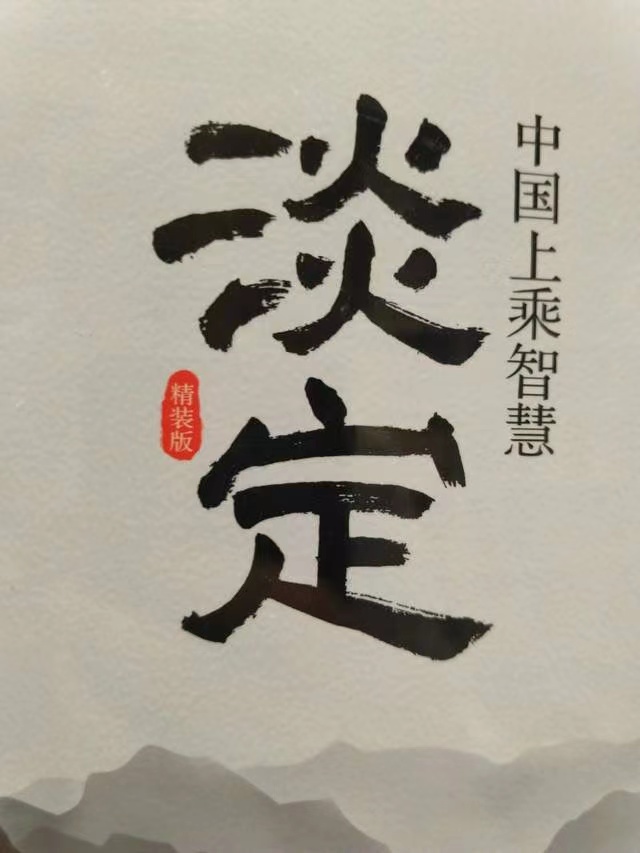 中国上乘智慧
淡定
精装版